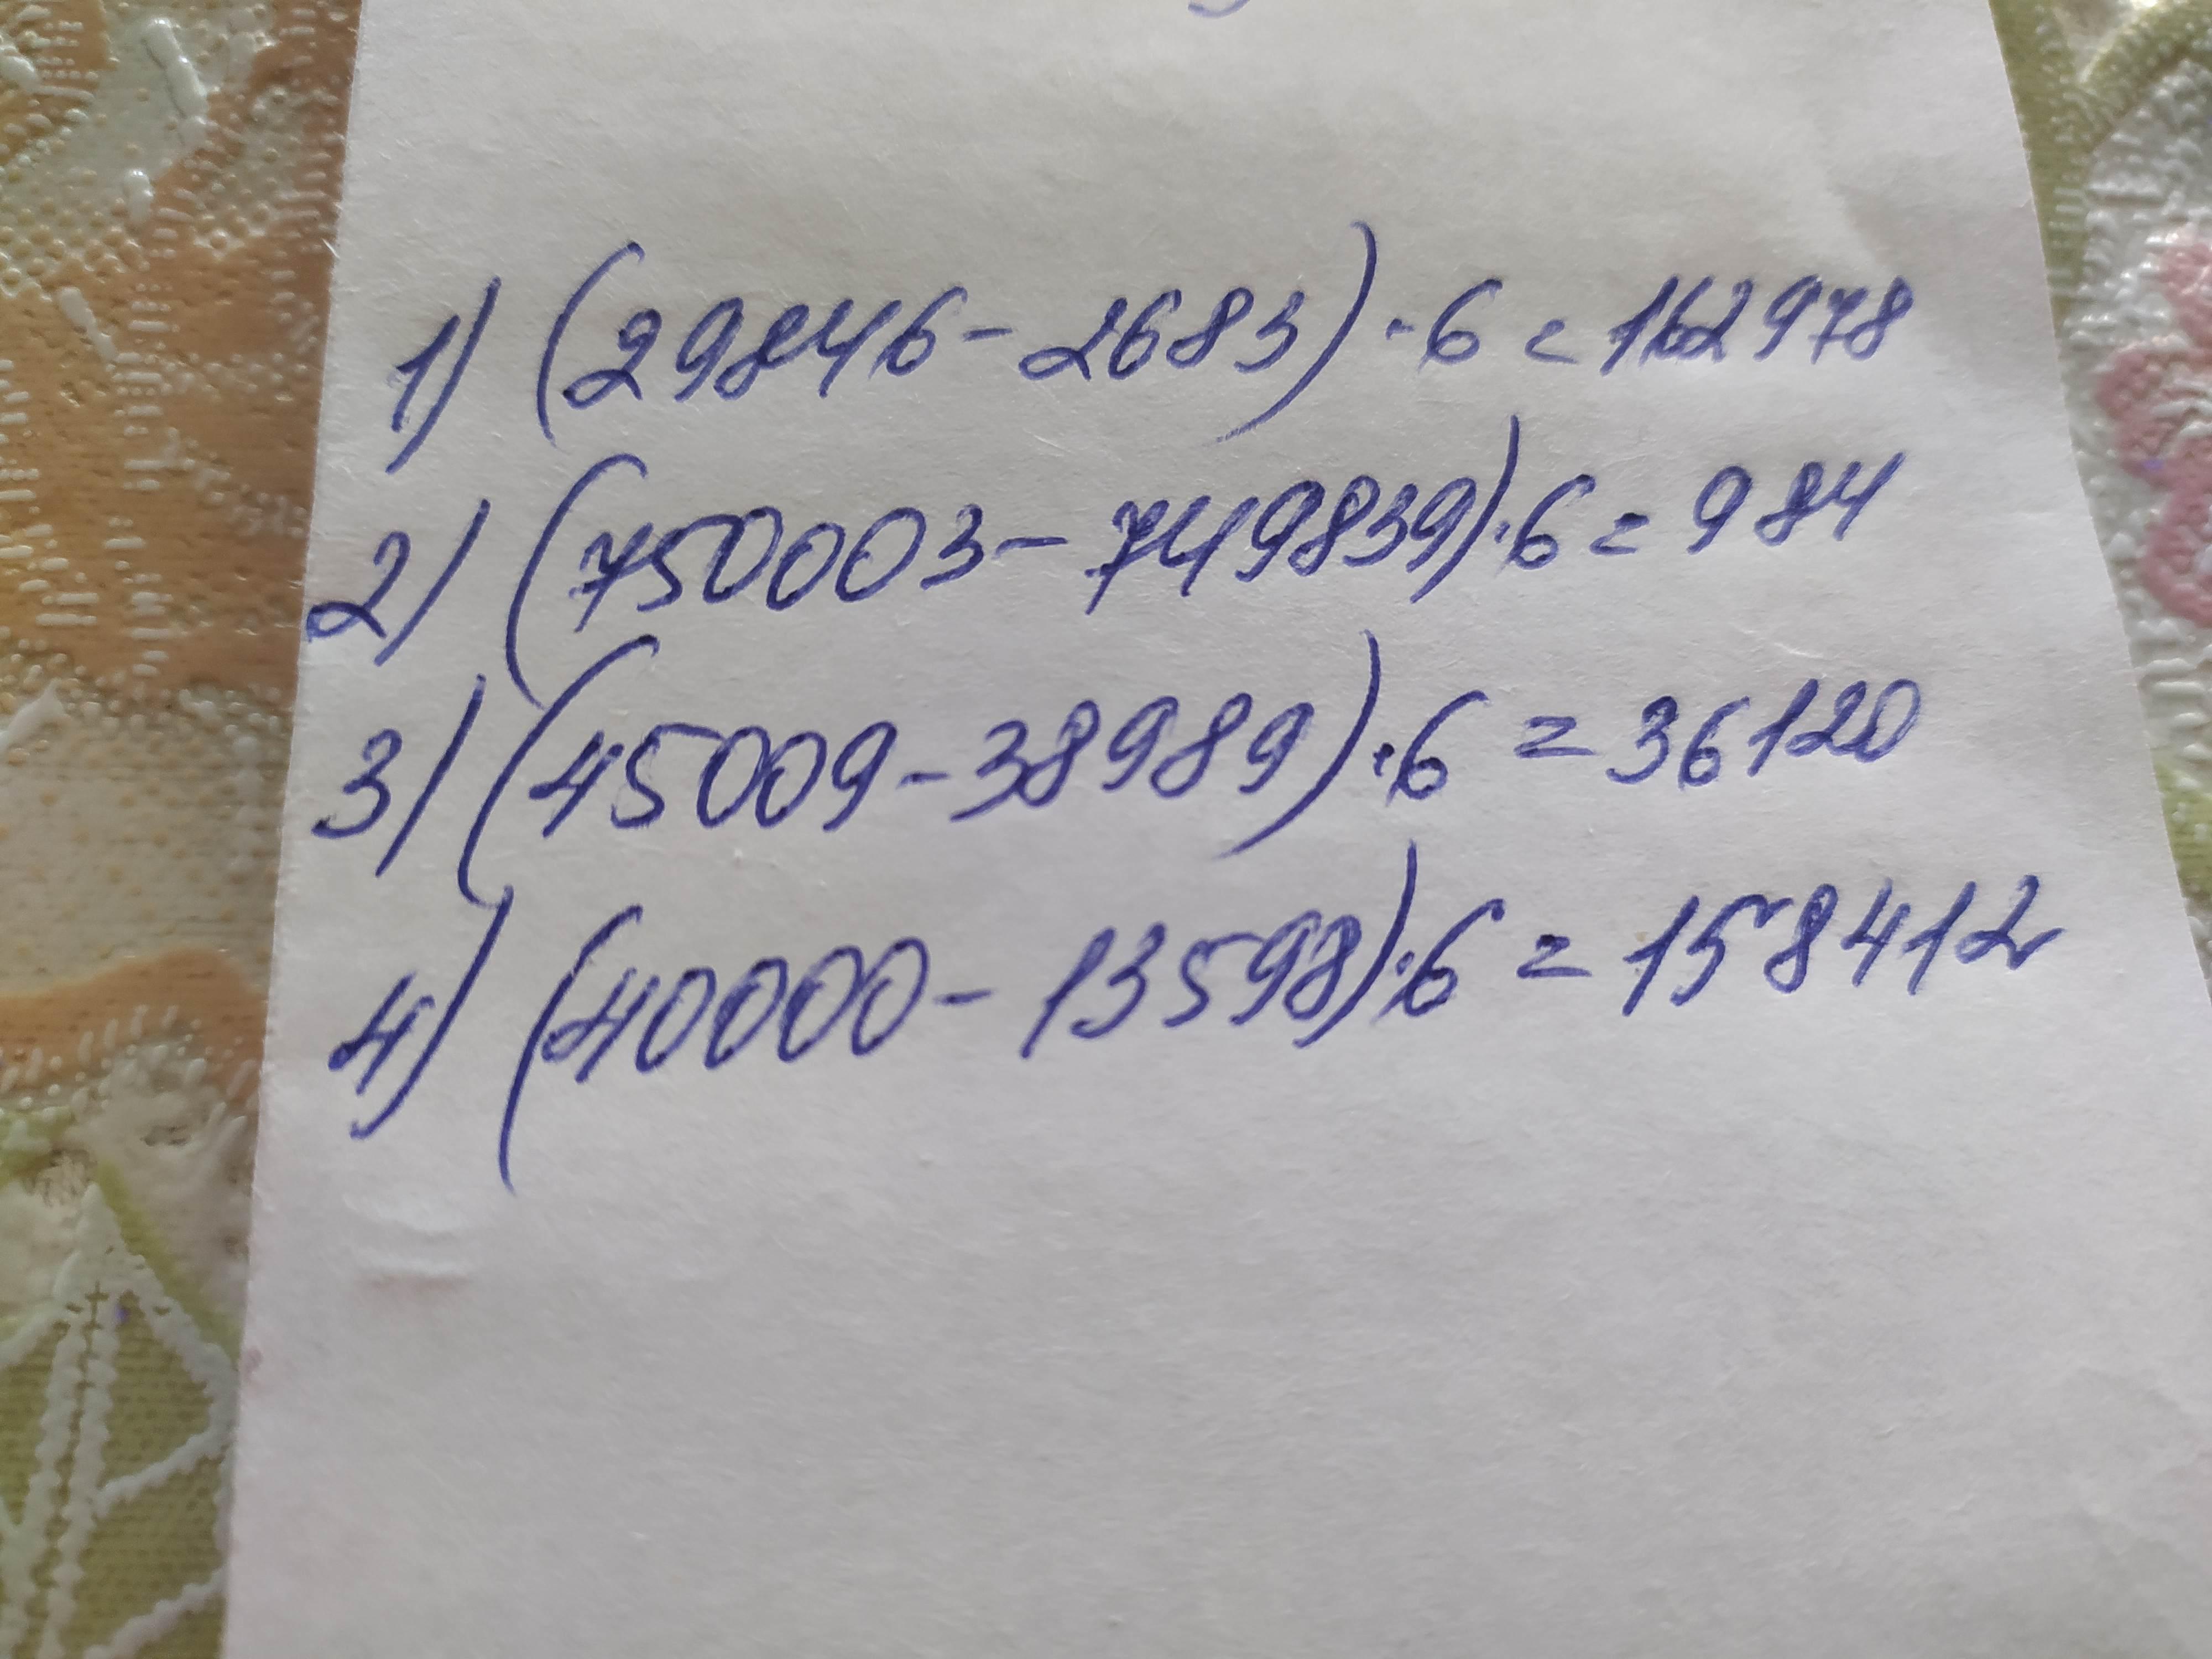 1) (29846-2683)·6=162978
2) (750003-749839)·6=984
3) (45009-38989)·6=36120
4) (40000-13598)·6=158412